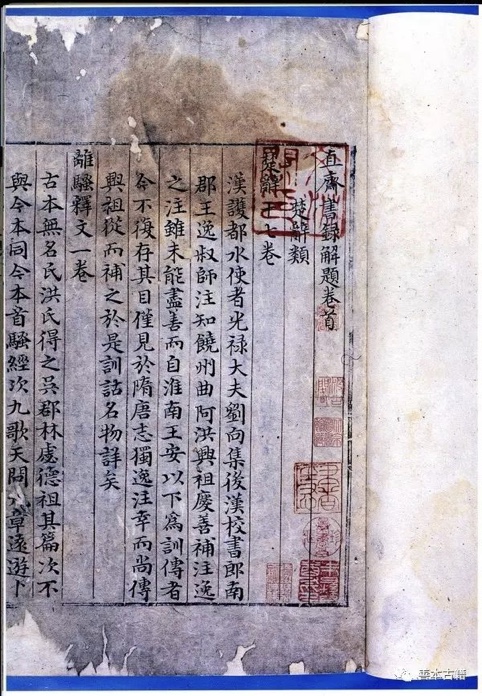 直齋書録解題卷首
楚辭類
楚辭十七卷
漢護都水使者光禄大夫劉向集後漢校書郎南
郡王逸叔師注知饒州曲阿洪興祖慶善補注逸
之注雖未能盡善而自淮南王安以下為訓傳者
今不復存其目僅見於隋唐志獨逸注幸而尚傳
興祖從而補之於是訓詁名物詳矣
離騷釋文一卷
古本無名氏洪氏得之吳郡林虙德祖其篇次不
與今本同今本首騷經次九歌天問九章遠遊卜
雲本古籍